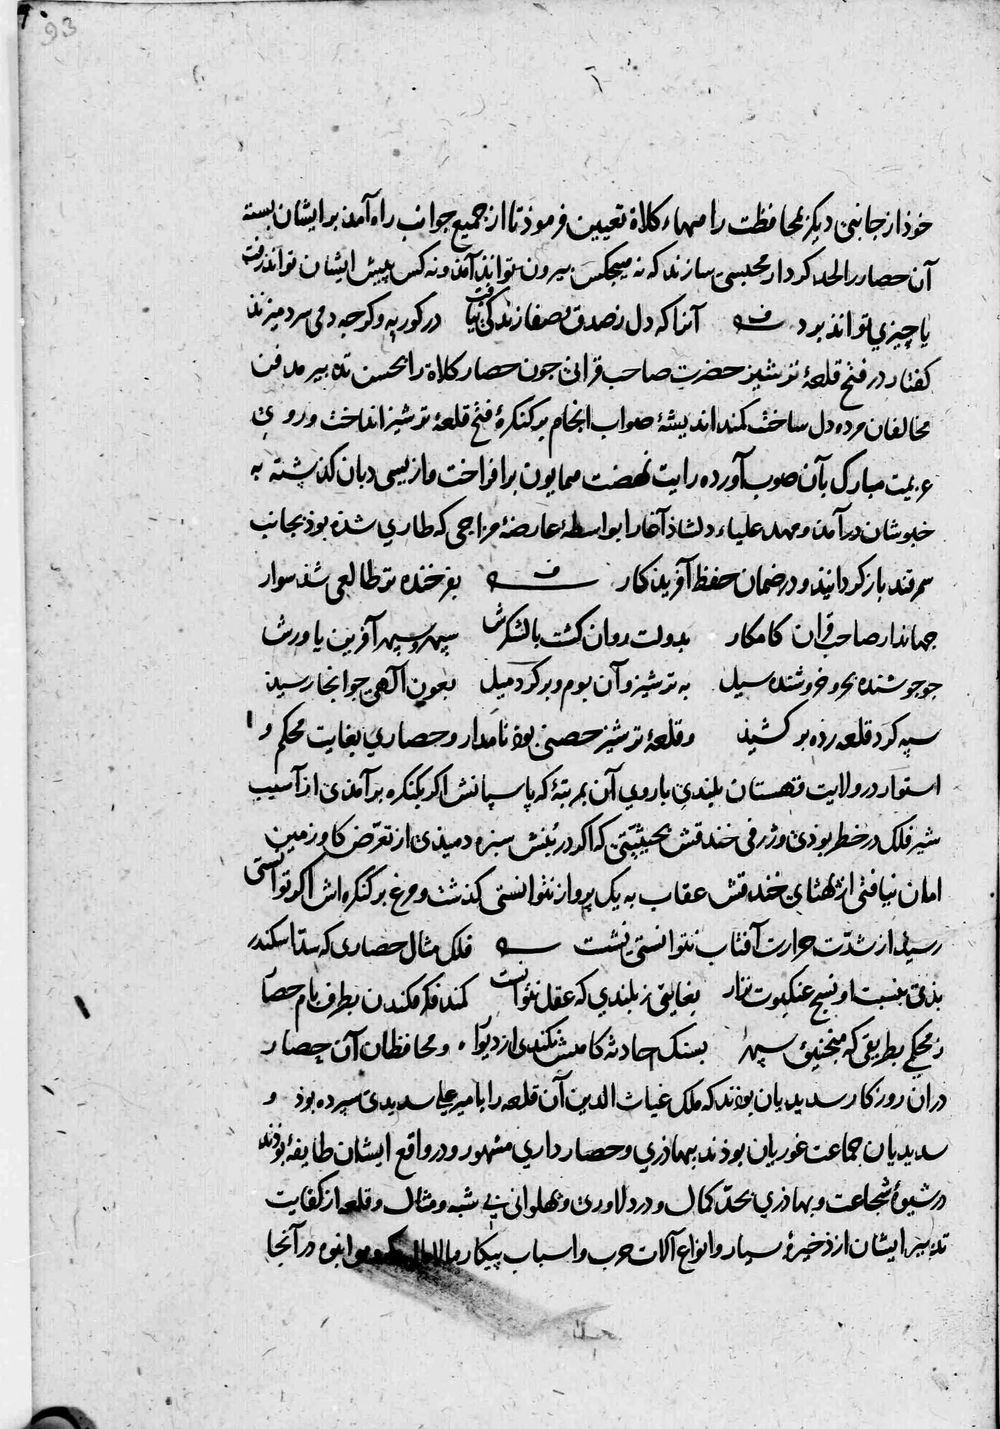 93
خوذ از جانبی دیکر بمحافظت راههاء کلاه تعیین فرموذ تا از جمیع جوانب راه آمدن بر ایشان بسته
آن حصار را لحد کردار محبسی سازند که نه هیچکس بیرون تواند آمد و نه کس پیش ایشان تواند رفت
یا چیزی تواند بود آنرا که دل ز صدق و صفا زندکی نیافت در کور به وکرچه دمی سرد میزند
کفتار در فتح قلعهٔ ترشیز حضرت صاحب قرانی جون حصار کلاه را بحسن تدبیر مدفن
مخالفان مرده دل ساخت کمند اندیشهٔ صواب انجام بر کنکرهٔ فتح قلعهٔ ترشیز انداخت و روی
عزیمت مبارک بآن صوب آورده رایت نهضت همایون برافراخت و از یسی دبان کذشته به
خبوشان در آمد و مهد علیاء دلشاذ آغا را بواسطهٔ عارضهٔ مزاجی که طاری شذه بوذ بجانب
سمرقند باز کردانیذ و در ضمان حفظ آفریدکار بفرخنده تر طالعی شذ سوار
جهاندار صاحب قران کامکار بدولت روان کشت با لشکرش سپهر و سپهر آفرین یاورش
جو جوشنده بحر و خروشنده سیل به ترشیز و آن بوم و بر کرد میل بعون آلهی جو انجا رسید
سپه کرد قلعه رده بر کشیذ و قلعهٔ ترشیز حصنی بوذ نامدار و حصاری بغایت محکم و
استوار در ولایت قهستان بلندی باروی آن بمرتبهٔ که پاسبانش اکر بکنکره بر آمدی از آسیب
شیر فلک در خطر بوذی و ژرفی خندقش بحیثیتی که اکر در بنش سبزه دمیذی از تعرض کاو زمین
امان نیافتی از پهنای خندقش عقاب به یک پرواز نتوانستی کذشت و مرغ بر کنکره اش اکر توانستی
رسید از شدت حرارت آفتاب نتوانستی نشست فلک مثال حصاری که سد اسکندر
بذی بنسبت او نسج عنکبوت نزار بغایتی ز بلندی که عقل نتوانست کمند فکر فکندن بطرف بام حصار
ز محکمی بطریقی که منجنیق سپهر بسنک حادثه کامش نکندی از دیوار و محافظان آن حصار
دران روزکار سدیدیان بوذند که ملک غیاث الدین آن قلعه را با میر علی سدیدی سپرده بوذ و
سدیدیان جماعت غوریان بوذند ببهاذری و حصار داری مشهور و در واقع ایشان طایفهٔ بوذند
در شیوهٔ شجاعت و بهاذری بحد کمال و در دلاوری و پهلوانی بی شبه و مثال و قلعه از کفایت
تدبیر ایشان از ذخیرهٔ بسیار و انواع آلات حرب و اسباب پیکار مالامال انبوه در آنجا